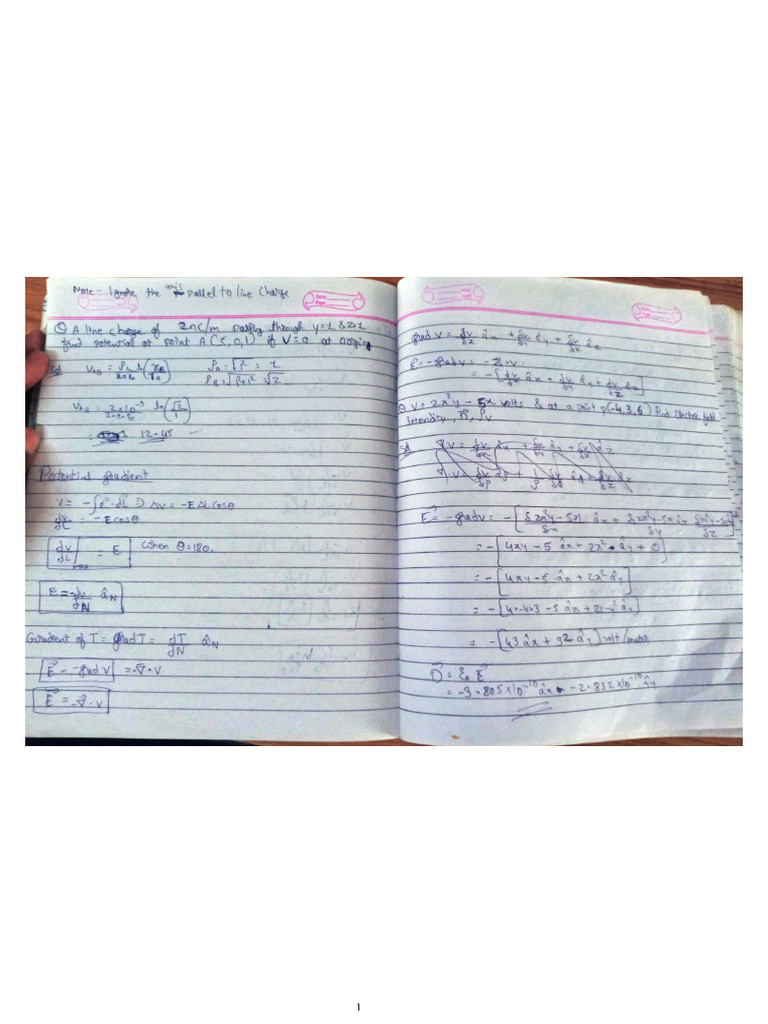 Note - Ignore the axis parallel to line charge
Q A line charge of 2nC/m passing through y=1 & z=1
find potential at point A(5,0,1) if V=0 at origing
Sol V_AB = ρL/2πε0 ln(ρB/ρA) ρA = √1² = 1
ρB = √1²+1² √2
V_AB = 2×10^-9/2×π×ε0 ln(√2/1)
= 12.45
Potential gradient
V = -∫E·dL ⇒ ΔV = -EΔL cosθ
dV/dL = -E cosθ
dV/dL|max = E when θ=180.
E = -dV/dN âN
Gradient of T = grad T = dT/dN âN
E = -grad V = -∇·V
E = -∇·V
grad V = dV/dx âx + dV/dy ây + dV/dz âz
E = -grad V = -∇·V
= -[dV/dx âx + dV/dy ây + dV/dz âz]
Q V = 2x²y - 5x volts & at a point p(-4,3,6) find electric field
intensity, D, ρv
Sol ∇V = dV/dx âx + dV/dy ây + dV/dz âz
E = -grad V = -[δ2x²y-5x/δx âx + δ2x²y-5x/δy ây δ2x²y-5x/δz]
= -[4xy-5 âx + 2x² ây + 0]
= -[4xy-5 âx + 2x² ây]
= -[4×-4×3 -5 âx + 2×-4² ây]
= -[43 âx + 32 ây] volt/meter
D = ε0 E
= -3.805×10^-10 âx - 2.832×10^-10 ây
1